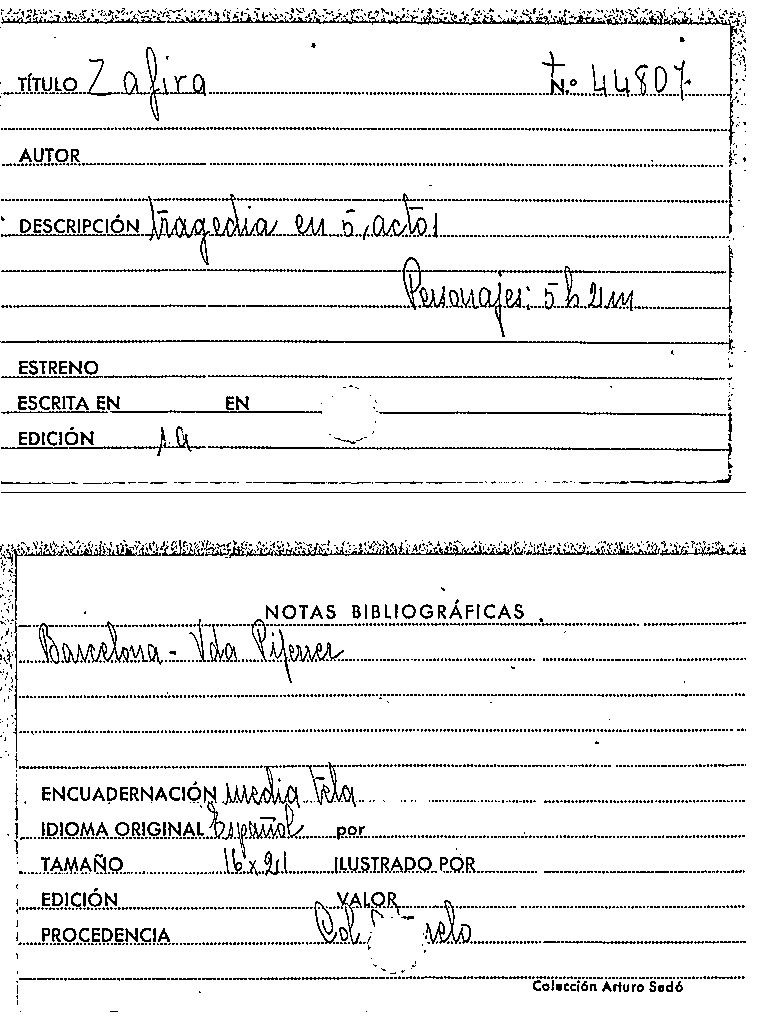 TÍTULO Zafira N.º 44807
AUTOR
DESCRIPCIÓN tragedia en 5, actos
Personajes: 5 h 2 m
ESTRENO
ESCRITA EN EN
EDICIÓN 1ª
NOTAS BIBLIOGRÁFICAS
Barcelona - Vda Piferrer
ENCUADERNACIÓN media tela
IDIOMA ORIGINAL Español por
TAMAÑO 16 x 21 ILUSTRADO POR
EDICIÓN VALOR
PROCEDENCIA Col
Colección Arturo Sedó